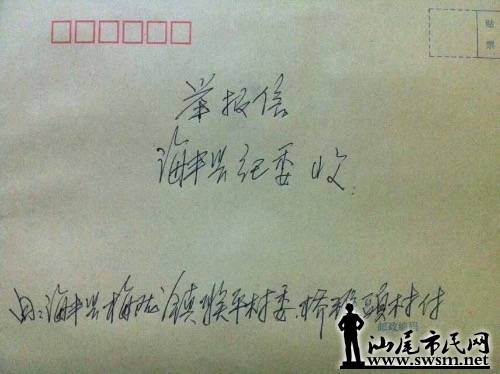 贴
票
举报信
海丰县纪委 收
由:海丰县梅陇镇 平村委 桥 頭村付
邮政编码
汕尾市民网
www.swsm.net